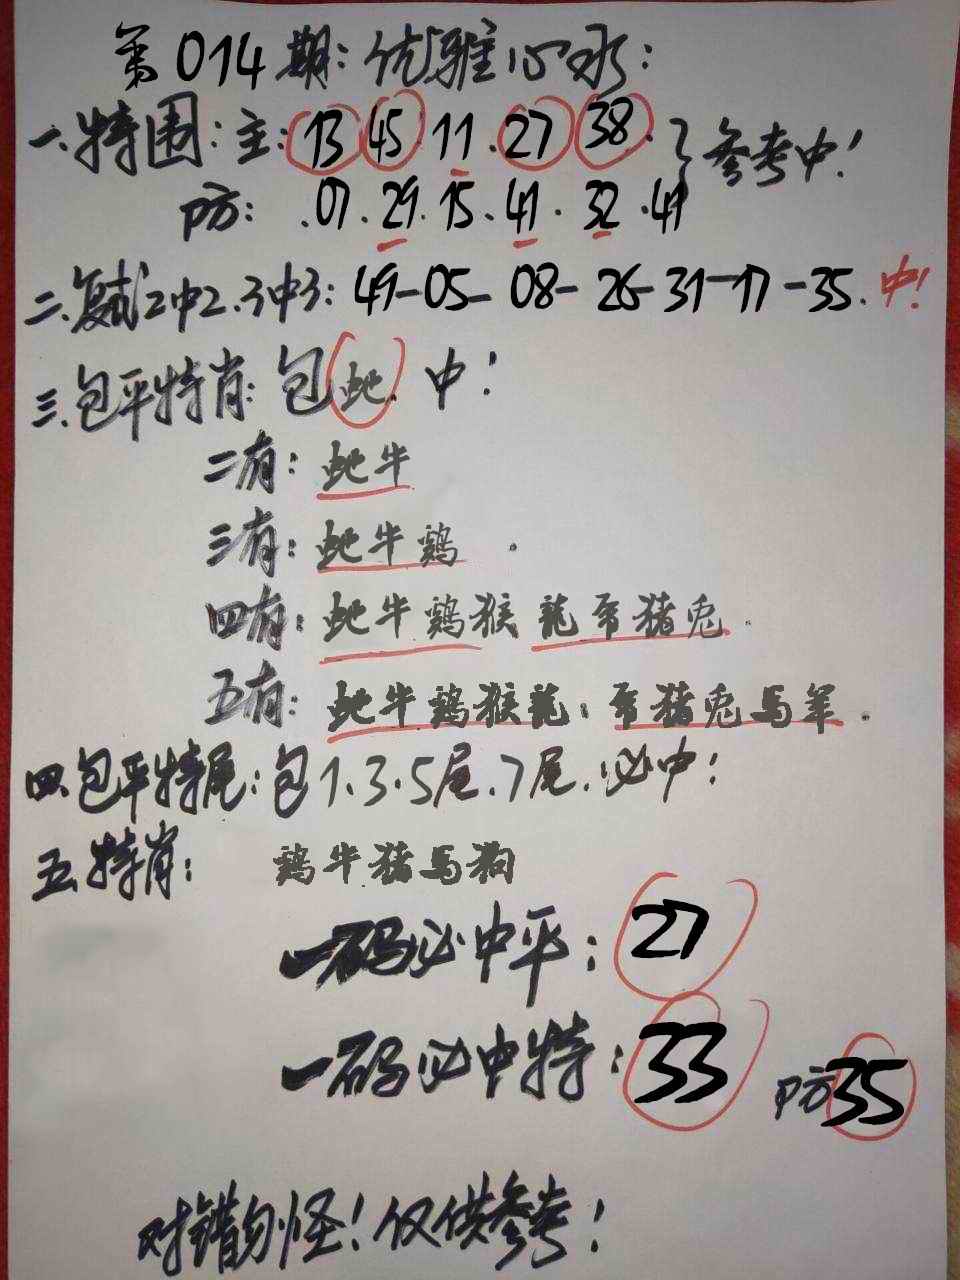 第014期:优雅心水:
一.特围:主:13.45.11.27.38.}参考中!
防:.07.29.15.41.32.49
二.复试2中2.3中3:49-05-08-26-31-17-35.中!
三.包平特肖:包蛇.中!
二有:蛇牛
三有:蛇牛鸡.
四有:蛇牛鸡猴龍.猪兔.
五有:蛇牛鸡猴龍.猪兔马羊.
四.包平特尾:包1.3.5尾.7尾.必中!
五.特肖:鸡牛猪马狗
一码必中平:27
一码必中特:33 防35
对错勿怪!仅供参考!